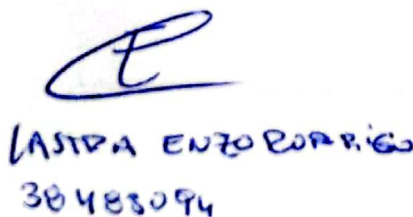 LASTRA ENZO RODRIGO
38483094